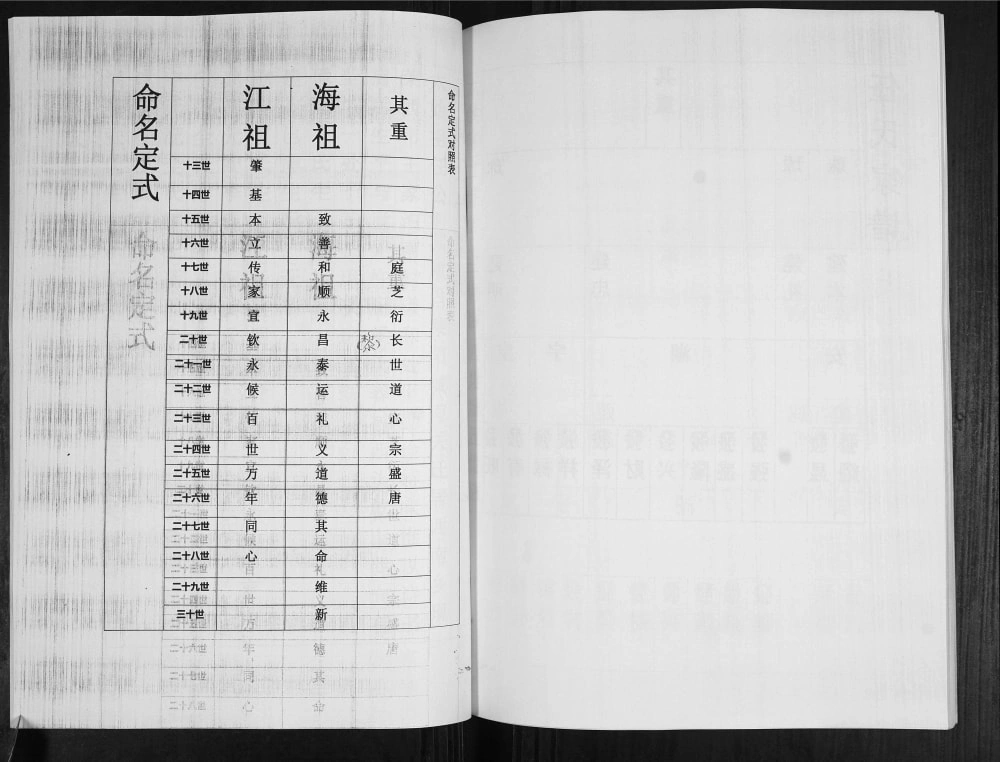 命名定式对照表
命名定式
江祖 海祖 其重
十三世 肇
十四世 基
十五世 本 致
十六世 立 善
十七世 传 和 庭
十八世 家 顺 芝
十九世 宣 永 衍
二十世 钦 昌 长
二十一世 永 泰 世
二十二世 候 运 道
二十三世 百 礼 心
二十四世 世 义 宗
二十五世 万 道 盛
二十六世 年 德 唐
二十七世 同 其
二十八世 心 命
二十九世 维
三十世 新